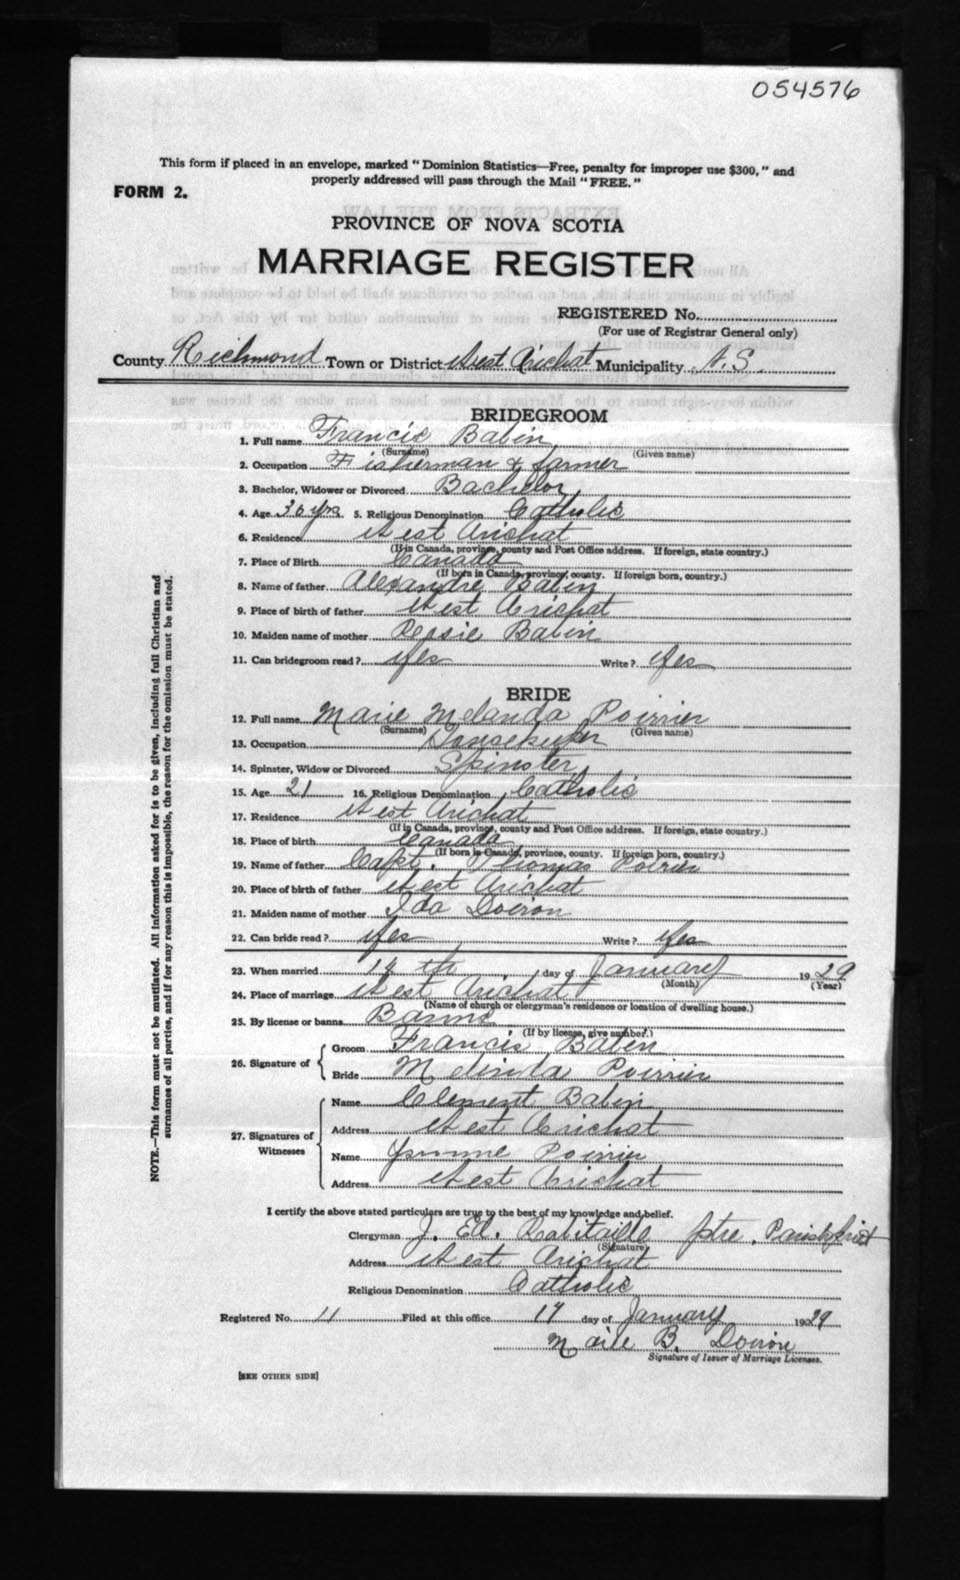 054576
This form if placed in an envelope, marked "Dominion Statistics—Free, penalty for improper use $300," and
properly addressed will pass through the Mail "FREE."
FORM 2.
PROVINCE OF NOVA SCOTIA
MARRIAGE REGISTER
REGISTERED No.
(For use of Registrar General only)
County Richmond Town or District West Arichat Municipality N.S.
BRIDEGROOM
1. Full name Francis Babin
(Surname) (Given name)
2. Occupation Fisherman & farmer
3. Bachelor, Widower or Divorced Bachelor
4. Age 30 yrs 5. Religious Denomination Catholic
6. Residence West Arichat
(If in Canada, province, county and Post Office address. If foreign, state country.)
7. Place of Birth Canada
(If born in Canada, province, county. If foreign born, country.)
8. Name of father Alexandre Babin
9. Place of birth of father West Arichat
10. Maiden name of mother Babin
11. Can bridegroom read? Yes Write? Yes
BRIDE
12. Full name Marie Melanda Poirrier
(Surname) (Given name)
13. Occupation Housekeeper
14. Spinster, Widow or Divorced Spinster
15. Age 21 16. Religious Denomination Catholic
17. Residence West Arichat
(If in Canada, province, county and Post Office address. If foreign, state country.)
18. Place of birth Canada
(If born in Canada, province, county. If foreign born, country.)
19. Name of father Capt. Thomas Poirier
20. Place of birth of father West Arichat
21. Maiden name of mother Ida Doiron
22. Can bride read? Yes Write? Yes
23. When married th day of January 1929
(Month) (Year)
24. Place of marriage West Arichat
(Name of church or clergyman's residence or location of dwelling house.)
25. By license or banns Banns
(If by license, give number.)
26. Signature of
Groom Francis Babin
Bride Melinda Poirrier
27. Signatures of Witnesses
Name Clement Babin
Address West Arichat
Name Yvonne Poirrier
Address West Arichat
I certify the above stated particulars are true to the best of my knowledge and belief.
Clergyman J. Ed. Rabitaille ptre, Parish priest
(Signature)
Address West Arichat
Religious Denomination Catholic
Registered No. 11 Filed at this office 17 day of January 1929
Marie B. Doiron
Signature of Issuer of Marriage Licenses.
[SEE OTHER SIDE]
NOTE.—This form must not be mutilated. All information asked for is to be given, including full Christian and
surnames of all parties, and if for any reason this is impossible, the reason for the omission must be stated.